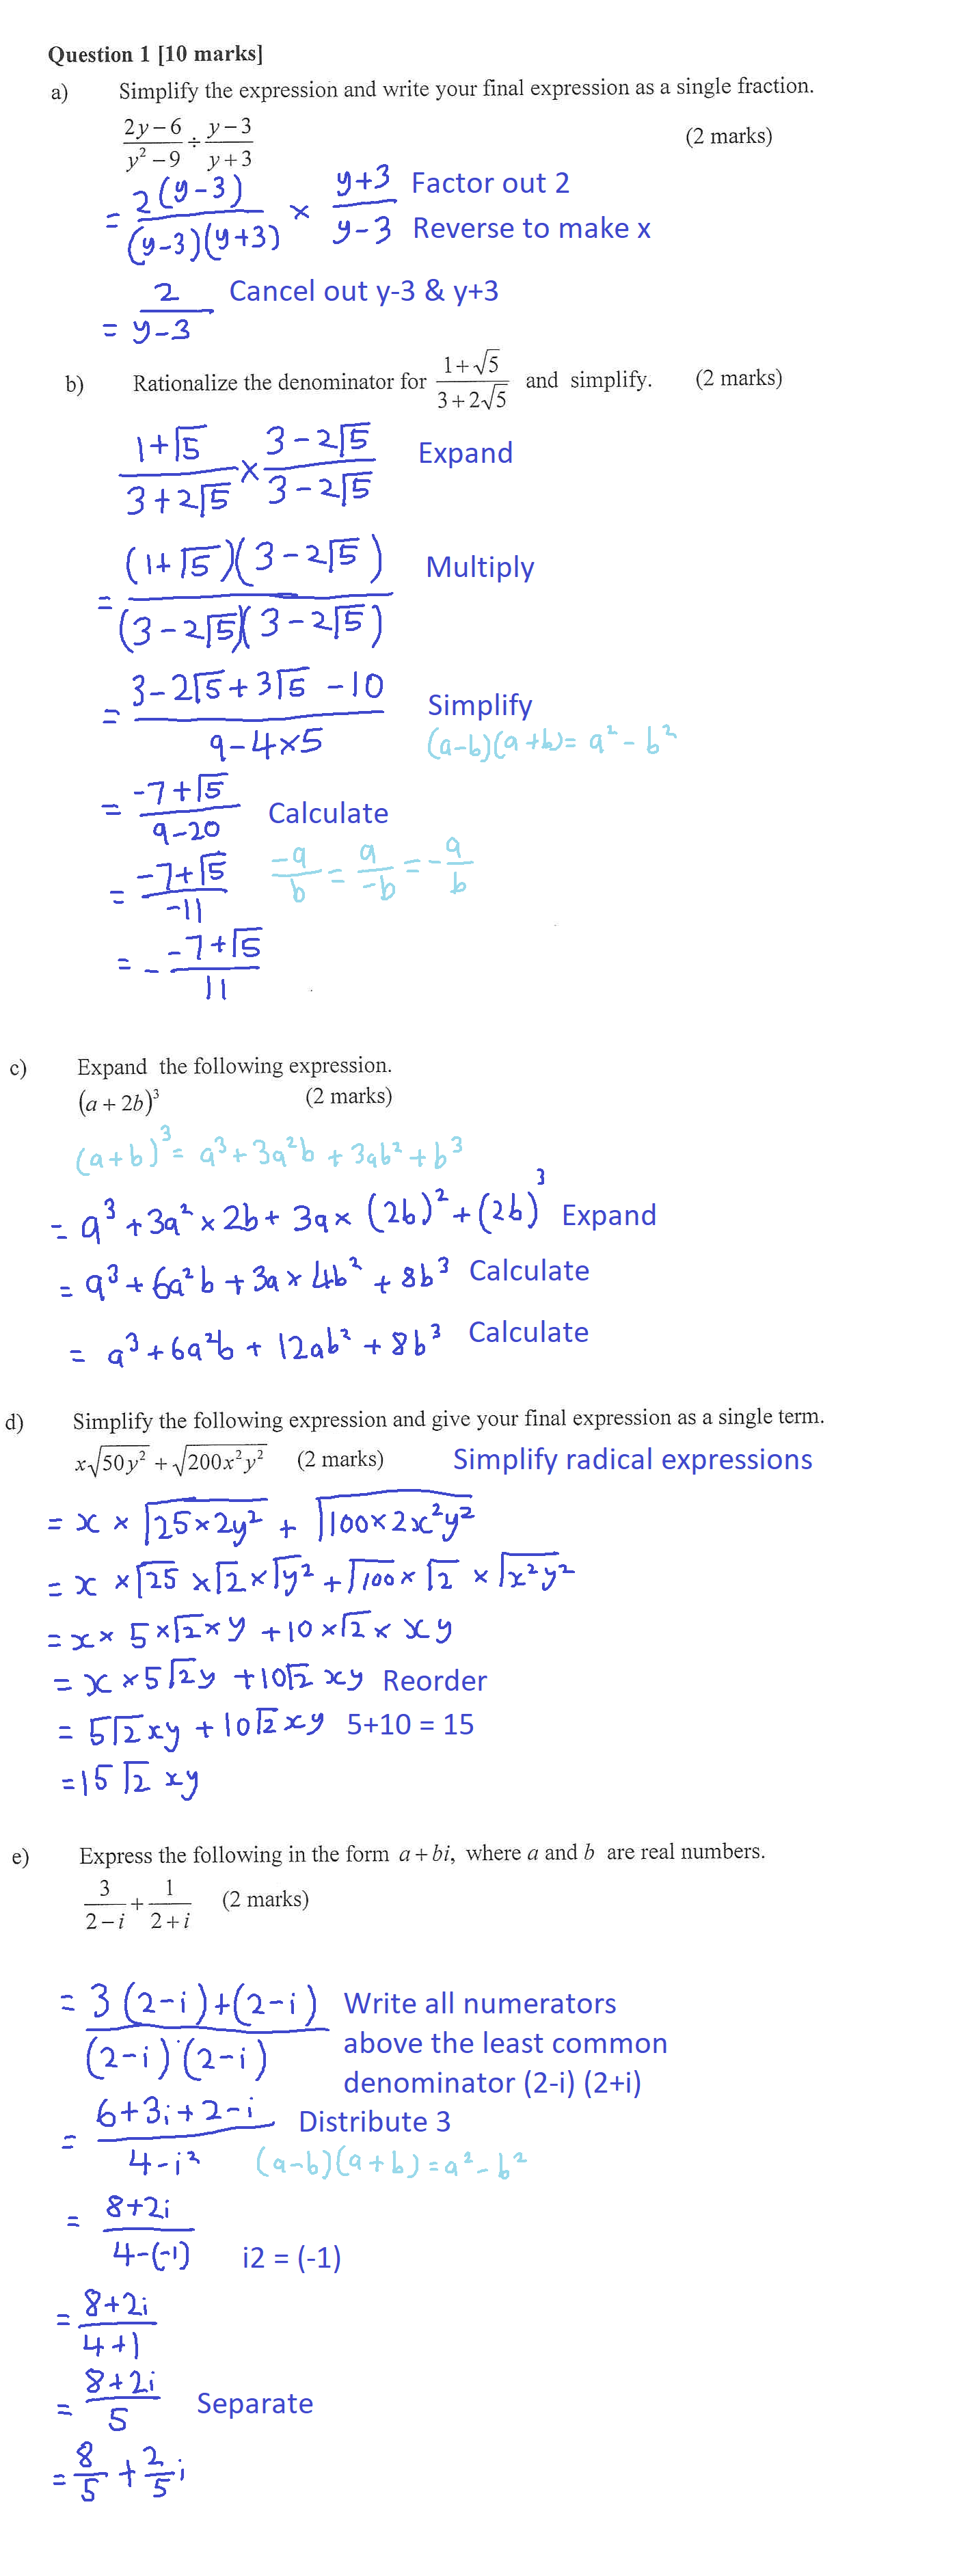 Question 1 [10 marks]
a) Simplify the expression and write your final expression as a single fraction.
(2y−6)/(y²−9) ÷ (y−3)/(y+3) (2 marks)
= 2(y−3)/((y−3)(y+3)) × (y+3)/(y−3) Factor out 2
Reverse to make x
= 2/(y−3) Cancel out y-3 & y+3
b) Rationalize the denominator for (1+√5)/(3+2√5) and simplify. (2 marks)
(1+√5)/(3+2√5) × (3−2√5)/(3−2√5) Expand
= (1+√5)(3−2√5)/((3−2√5)(3−2√5)) Multiply
= (3−2√5+3√5−10)/(9−4×5) Simplify
(a−b)(a+b)= a²−b²
= (−7+√5)/(9−20) Calculate
= (−7+√5)/(−11) (−a)/b = a/(−b) = −a/b
= −(−7+√5)/11
c) Expand the following expression.
(a+2b)³ (2 marks)
(a+b)³= a³+3a²b+3ab²+b³
= a³+3a²×2b+3a×(2b)²+(2b)³ Expand
= a³+6a²b+3a×4b²+8b³ Calculate
= a³+6a²b+12ab²+8b³ Calculate
d) Simplify the following expression and give your final expression as a single term.
x√(50y²)+√(200x²y²) (2 marks) Simplify radical expressions
= x×√(25×2y²)+√(100×2x²y²)
= x×√25×√2×√y²+√100×√2×√(x²y²)
= x×5×√2×y+10×√2×xy
= x×5√2y+10√2xy Reorder
= 5√2xy+10√2xy 5+10 = 15
=15√2xy
e) Express the following in the form a+bi, where a and b are real numbers.
3/(2−i)+1/(2+i) (2 marks)
= (3(2−i)+(2−i))/((2−i)(2−i)) Write all numerators
above the least common
denominator (2-i) (2+i)
= (6+3i+2−i)/(4−i²) Distribute 3
(a−b)(a+b)=a²−b²
= (8+2i)/(4−(−1)) i2 = (-1)
= (8+2i)/(4+1)
= (8+2i)/5 Separate
= 8/5+2/5i